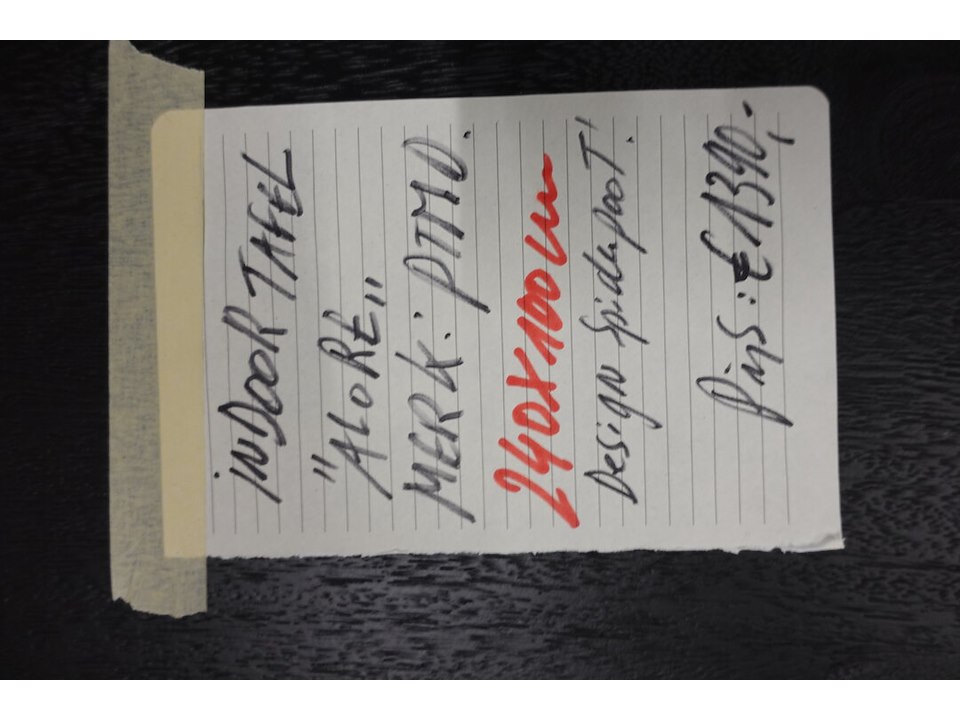 INDOOR TAFEL
"ALORE"
MERK: PTMD.
240X100cm
Design spiderpoot!
Prijs: €1390,-